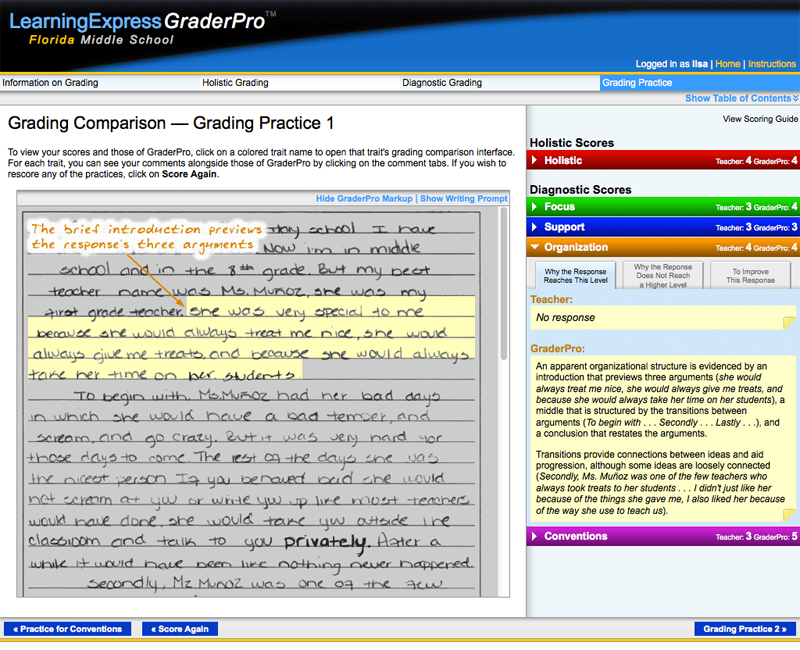 LearningExpress GraderPro™
Florida Middle School
Logged in as lisa | Home | Instructions
Information on Grading
Holistic Grading
Diagnostic Grading
Grading Practice
Show Table of Contents
Grading Comparison — Grading Practice 1
To view your scores and those of GraderPro, click on a colored trait name to open that trait's grading comparison interface.
For each trait, you can see your comments alongside those of GraderPro by clicking on the comment tabs. If you wish to
rescore any of the practices, click on Score Again.
Hide GraderPro Markup | Show Writing Prompt
The brief introduction previews
the response's three arguments
school I have
Now i'm in middle
school and in the 8th grade. But my best
teacher name was Ms. Muñoz, she was my
first grade teacher. she was very special to me
because she would always treat me nice, she would
always give me treats, and because she would always
take her time on her students
To begin with, Ms. Muñoz had her bad days
in which she would have a bad temper, and
scream, and go crazy. But it was very hard for
those days to come. The rest of the days she was
the nicest person If you behaved bad she would
not scream at you or write you up like most teachers
would have done, she would take you outside the
classroom and talk to you privately. After a
while it would have been like nothing never happened.
secondly, Mz Munoz was one of the few
View Scoring Guide
Holistic Scores
Holistic Teacher: 4 GraderPro: 4
Diagnostic Scores
Focus Teacher: 3 GraderPro: 4
Support Teacher: 3 GraderPro: 3
Organization Teacher: 4 GraderPro: 4
Why the Response
Reaches This Level
Why the Reponse
Does Not Reach
a Higher Level
To Improve
This Response
Teacher:
No response
GraderPro:
An apparent organizational structure is evidenced by an
introduction that previews three arguments (she would
always treat me nice, she would always give me treats, and
because she would always take her time on her students), a
middle that is structured by the transitions between
arguments (To begin with . . . Secondly . . . Lastly . . .), and
a conclusion that restates the arguments.
Transitions provide connections between ideas and aid
progression, although some ideas are loosely connected
(Secondly, Ms. Muñoz was one of the few teachers who
always took treats to her students . . . I didn't just like her
because of the things she gave me, I also liked her because
of the way she use to teach us).
Conventions Teacher: 3 GraderPro: 5
« Practice for Conventions
« Score Again
Grading Practice 2 »